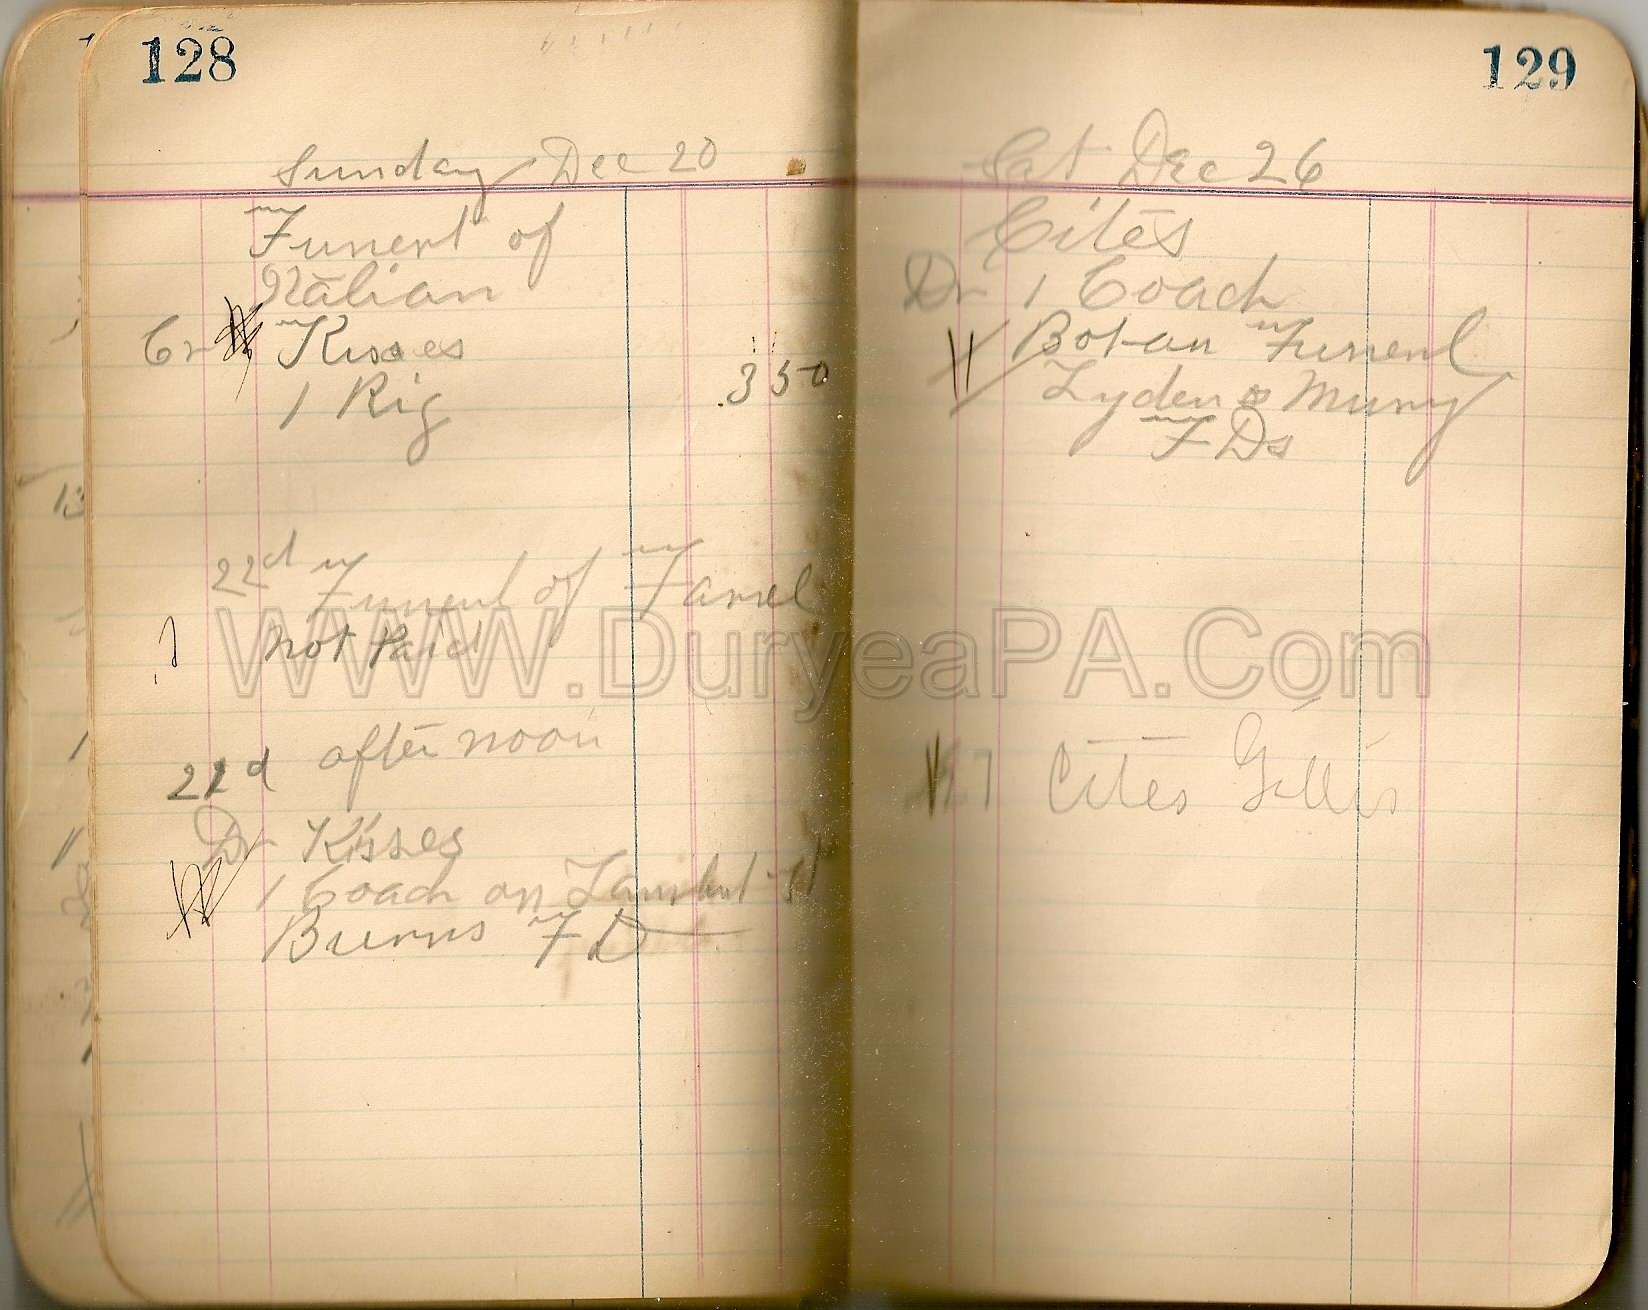 128
Sunday Dec 20
Funerl of
Italian
Cr Kisses
1 Rig 3 50
22d Funerl of Farrel
not Paid
?
22d afternoon
Dr Kisses
1 Coach on Lambert st
Burns F D
129
Sat Dec 26
Cites
Dr 1 Coach
Botan Funerl
Lyden & Murry
F Ds
Cites Gillis
WWW.DuryeaPA.Com